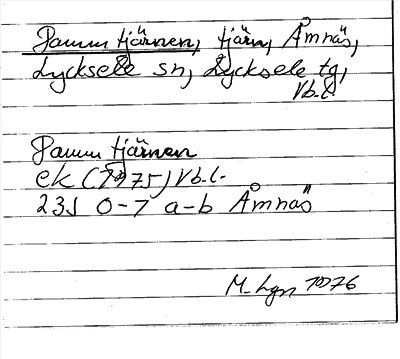 Damm tjärnen, tjärn, Åmnäs,
Lycksele sn, Lycksele tg,
Vb.l.
Damm tjärnen
ek (1975) Vb.l.
23J 0-7 a-b Åmnäs
M. Lgn 1976